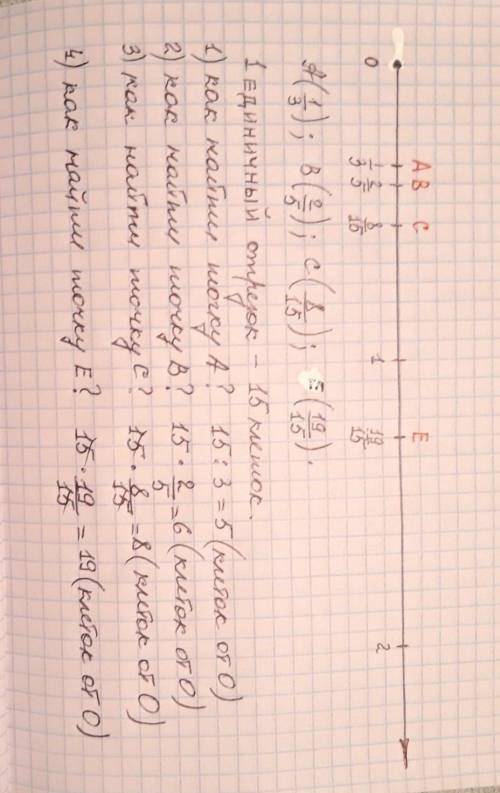 A B C E
0 1/3 2/5 8/15 1 19/15 2
A(1/3); B(2/5); C(8/15); E(19/15).
1 единичный отрезок - 15 клеток.
1) как найти точку A? 15 : 3 = 5 (клеток от 0)
2) как найти точку B? 15 · 2/5 = 6 (клеток от 0)
3) как найти точку C? 15 · 8/15 = 8 (клеток от 0)
4) как найти точку E? 15 · 19/15 = 19 (клеток от 0)